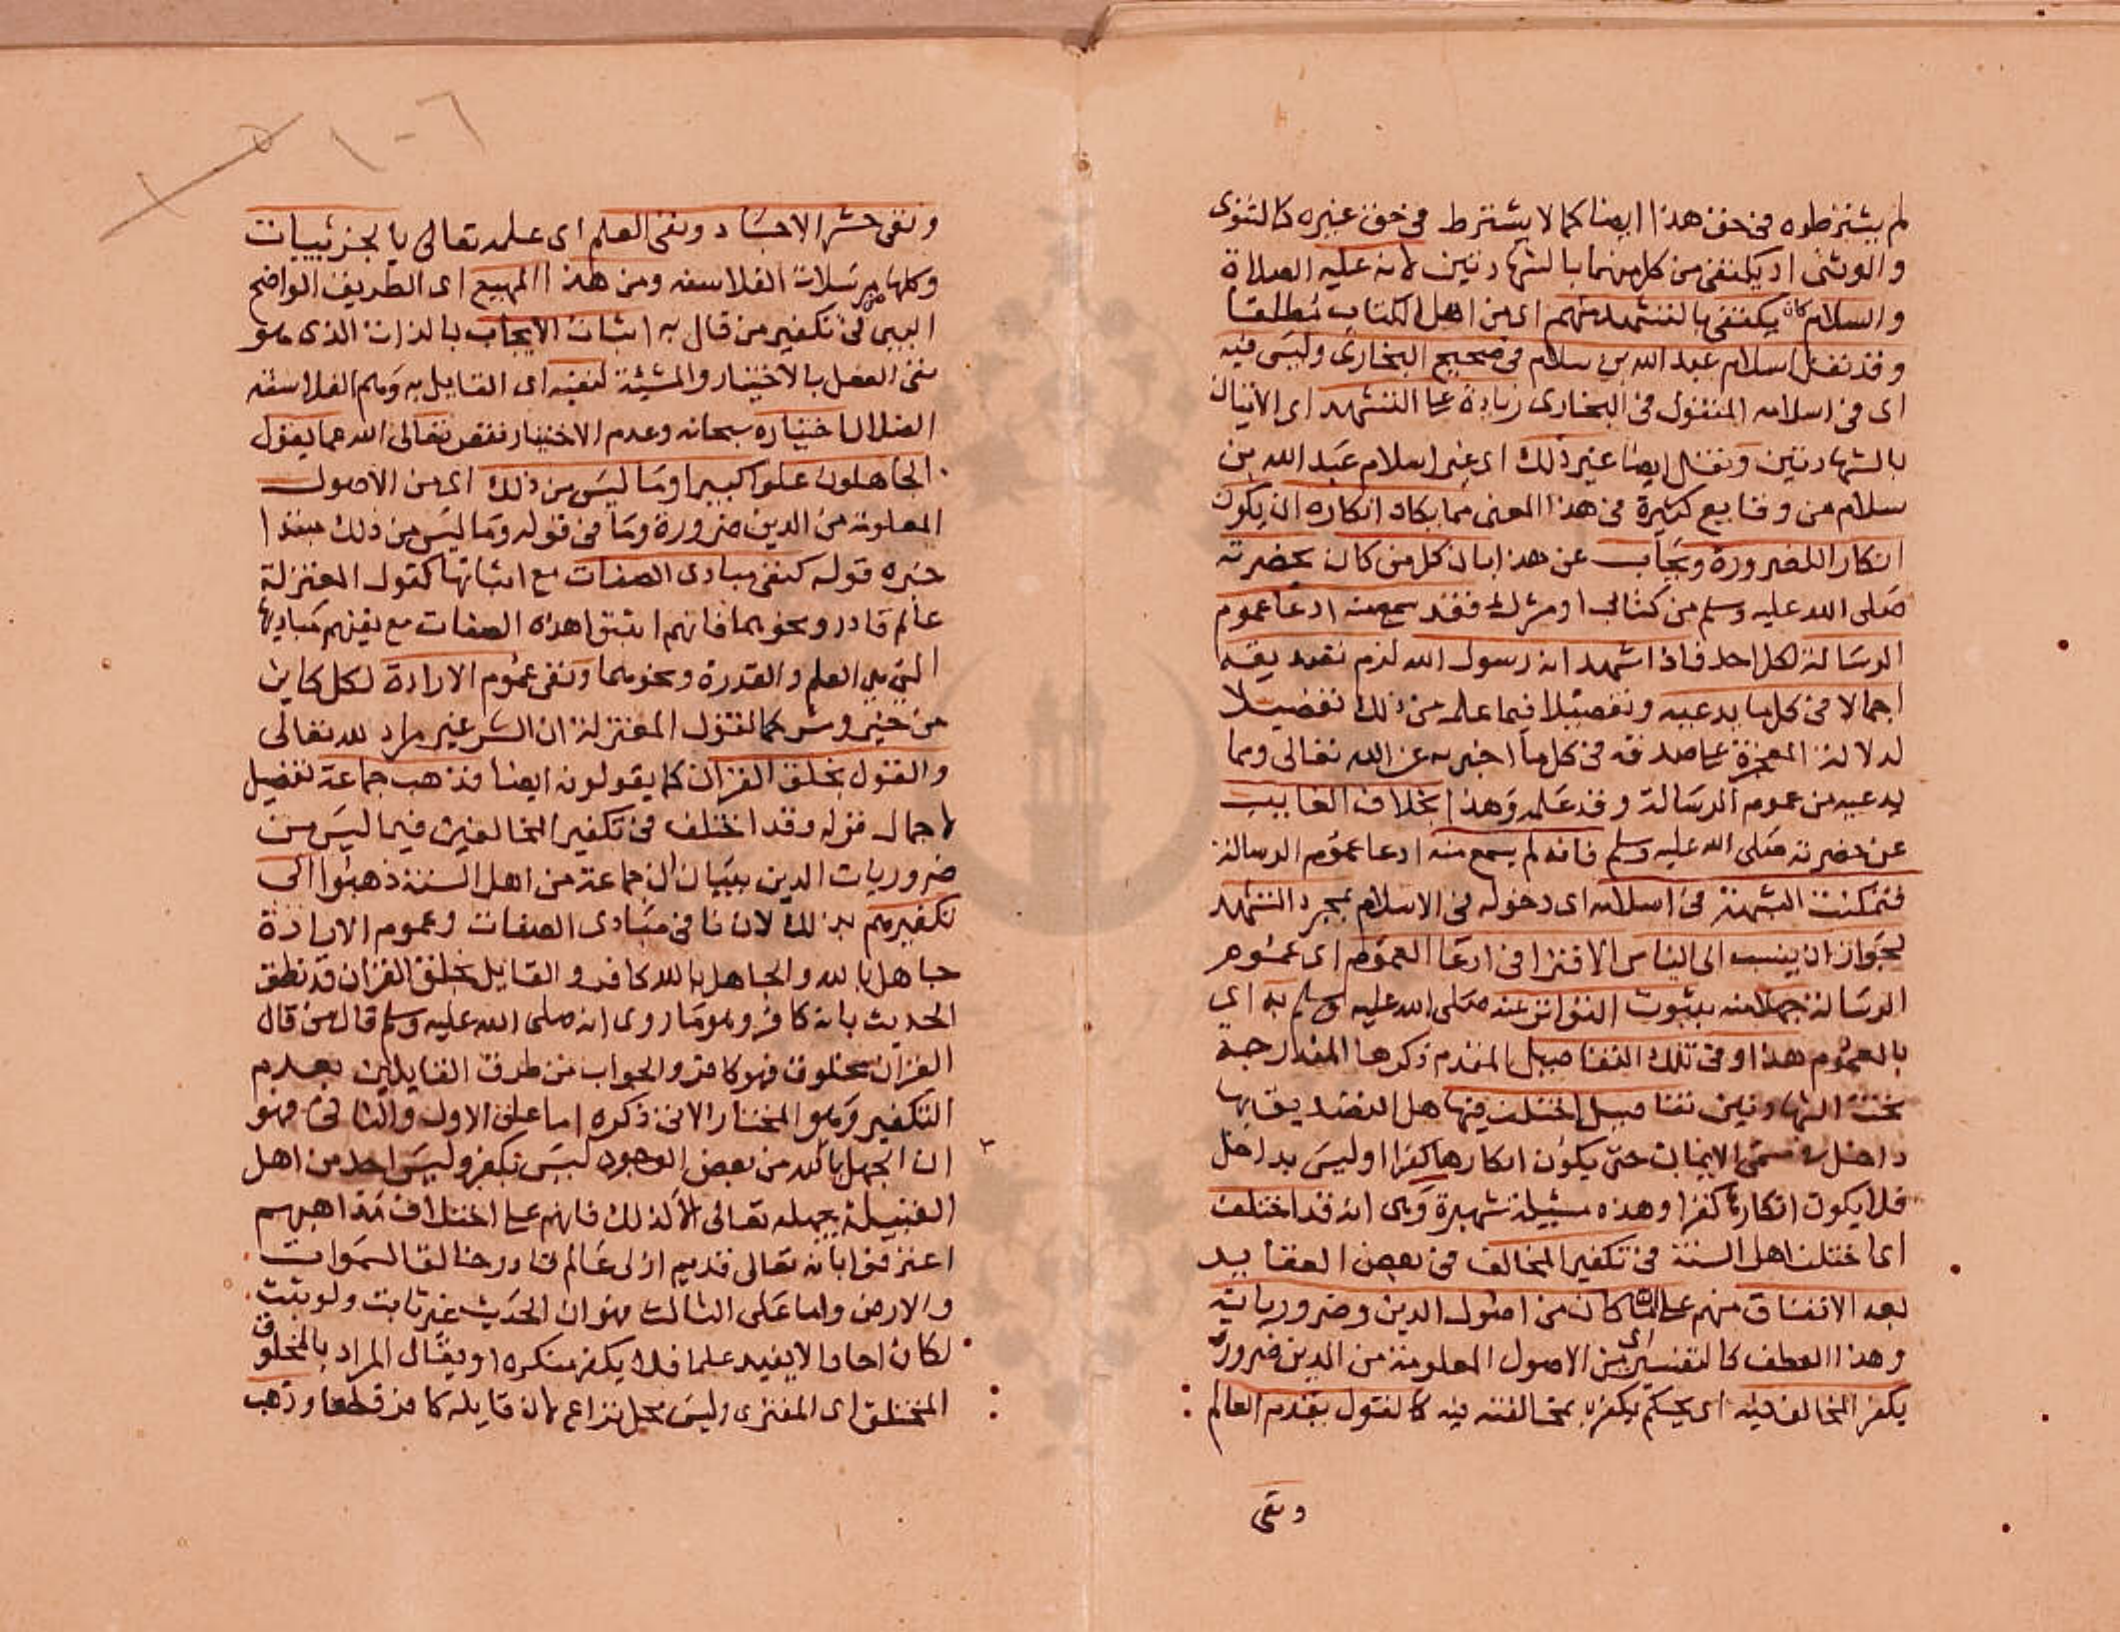 لم يشترطوه في حق هذا ايضا كما لا يشترط في حق غيره كالثنوى
والوثنى اذ يكتفى من كل منهما بالشهادتين لانه عليه الصلاة
والسلام كان يكتفى بالتشهد منهم اى من اهل الكتاب مطلقا
وقد نقل اسلام عبد الله بن سلام في صحيح البخارى وليس فيه
اى في اسلامه المنقول في البخارى زيادة على التشهد اى الاتيان
بالشهادتين ونقل ايضا غير ذلك اى غير اسلام عبد الله بن
سلام من وقايع كثيرة في هذا المعنى مما يكاد انكاره ان يكون
انكار اللضرورة ويجاب عن هذا بان كل من كان بحضرته
صلى الله عليه وسلم من كتابى او مشرك فقد سمع منه ادعا عموم
الرسالة لكل احد فاذا شهد انه رسول الله لزم تصديقه
اجمالا في كل ما يدعيه وتفصيلا فيما علمه من ذلك تفصيلا
لدلالة المعجزة على صدقه في كل ما اخبر به عن الله تعالى ومما
يدعيه من عموم الرسالة وقد علمه وهذا بخلاف الغايب
عن حضرته صلى الله عليه وسلم فانه لم يسمع منه ادعا عموم الرسالة
فتمكنت الشبهة في اسلامه اى دخوله في الاسلام بمجرد التشهد
لجواز ان ينسب الى الناس الافترا في ادعا العموم اى عموم
الرسالة جهلا منه بثبوت التواتر عنه صلى الله عليه وسلم به اى
بالعموم هذا وفى تلك التفاصيل المتقدم ذكرها المندرجة
تحت الشهادتين تفاصيل اختلف فيها هل التصديق بها
داخل في مسمى الايمان حتى يكون انكارها كفرا او ليس بداخل
فلا يكون انكارها كفرا وهذه مسئيلة شهيرة وهى انه قد اختلف
اى اختلف اهل السنة في تكفير المخالف في بعض العقايد
بعد الاتفاق منهم على ان ما كان من اصول الدين وضرورياته
وهذا العطف كالتفسيرى اى من الاصول المعلومة من الدين ضرورة
يكفر المخالف فيه اى يحكم بكفره بمخالفته فيه كالقول بقدم العالم
ونفى
١٠٦
ونفى حشر الاجساد ونفى العلم اى علمه تعالى بالجزئييات
وكلها من ضلالات الفلاسفه ومن هذا المهيع اى الطريق الواضح
البين في تكفير من قال به اثبات الايجاب بالذات الذى هو
نفى الفعل بالاختيار والمشيئة لنفيه اى القايل به وهم الفلاسفة
الضلال اختياره سبحانه وعدم الاختيار نقص تعالى الله عما يقول
الجاهلون علوا كبيرا وما ليس من ذلك اى من الاصول
المعلومة من الدين ضرورة وما في قوله وما ليس من ذلك مبتدا
خبره قوله كنفى مبادى الصفات مع اثباتها كقول المعتزلة
عالم قادر ونحوهما فانهم اثبتوا هذه الصفات مع نفيهم مباديها
التى هى العلم والقدرة ونحوهما ونفى عموم الارادة لكل كاين
من خير وشر كما تقول المعتزلة ان الشر غير مراد لله تعالى
والقول بخلق القران كما يقولونه ايضا فذهب جماعة تفصيل
لاجمال قوله وقد اختلف في تكفير المخالفين فيما ليس من
ضروريات الدين ببيان ان جماعة من اهل السنة ذهبوا الى
تكفيرهم بذلك لان نافى مبادى الصفات وعموم الارادة
جاهل بالله والجاهل بالله كافر والقايل بخلق القران قد نطق
الحديث بانه كافر وهو ما روى انه صلى الله عليه وسلم قال من قال
القران مخلوق فهو كافر والجواب من طرف القايلين بعدم
التكفير وهو المختار الاتى ذكره اما على الاول والثانى فهو
ان الجهل بالله من بعض الوجوه ليس بكفر وليس احد من اهل
القبيلة يجهله تعالى الا كذلك فانهم على اختلاف مذاهبهم
اعترفوا بانه تعالى قديم ازلى عالم قادر خالق السموات
والارض واما على الثالث فهو ان الحديث غير ثابت ولو ثبت
لكان احادا لا يفيد علما فلا يكفر منكره او يقال المراد بالمخلوق
المختلق اى المفترى وليس محل نزاع لان قايله كافر قطعا وذهب